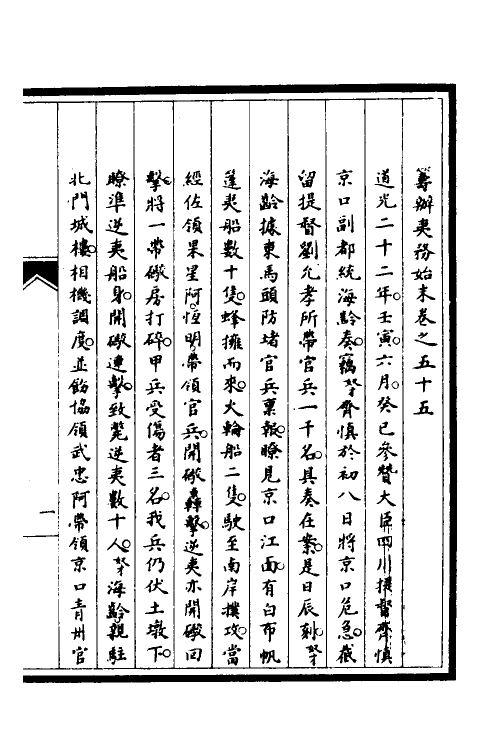 籌辦夷務始末卷之五十五
道光二十二年。壬寅。六月。癸巳。參贊大臣四川提督齊慎
京口副都統海齡奏。竊奴才齊慎於初八日將京口危急。截
留提督劉允孝所帶官兵一千名。具奏在案。是日辰刻。奴才
海齡據東馬頭防堵官兵稟報。瞭見京口江面。有白布帆
篷夷船數十隻。蜂擁而來。火輪船二隻。駛至南岸撲攻。當
經佐領果星阿。恆明。帶領官兵。開礮轟擊。逆夷亦開礮回
擊。將一帶礮房打碎。甲兵受傷者三名。我兵仍伏土墩下。
瞭準逆夷船身。開礮連擊。致斃逆夷數十人。奴才海齡親駐
北門城樓。相機調度。並飭協領武忠阿帶領京口青州官
一